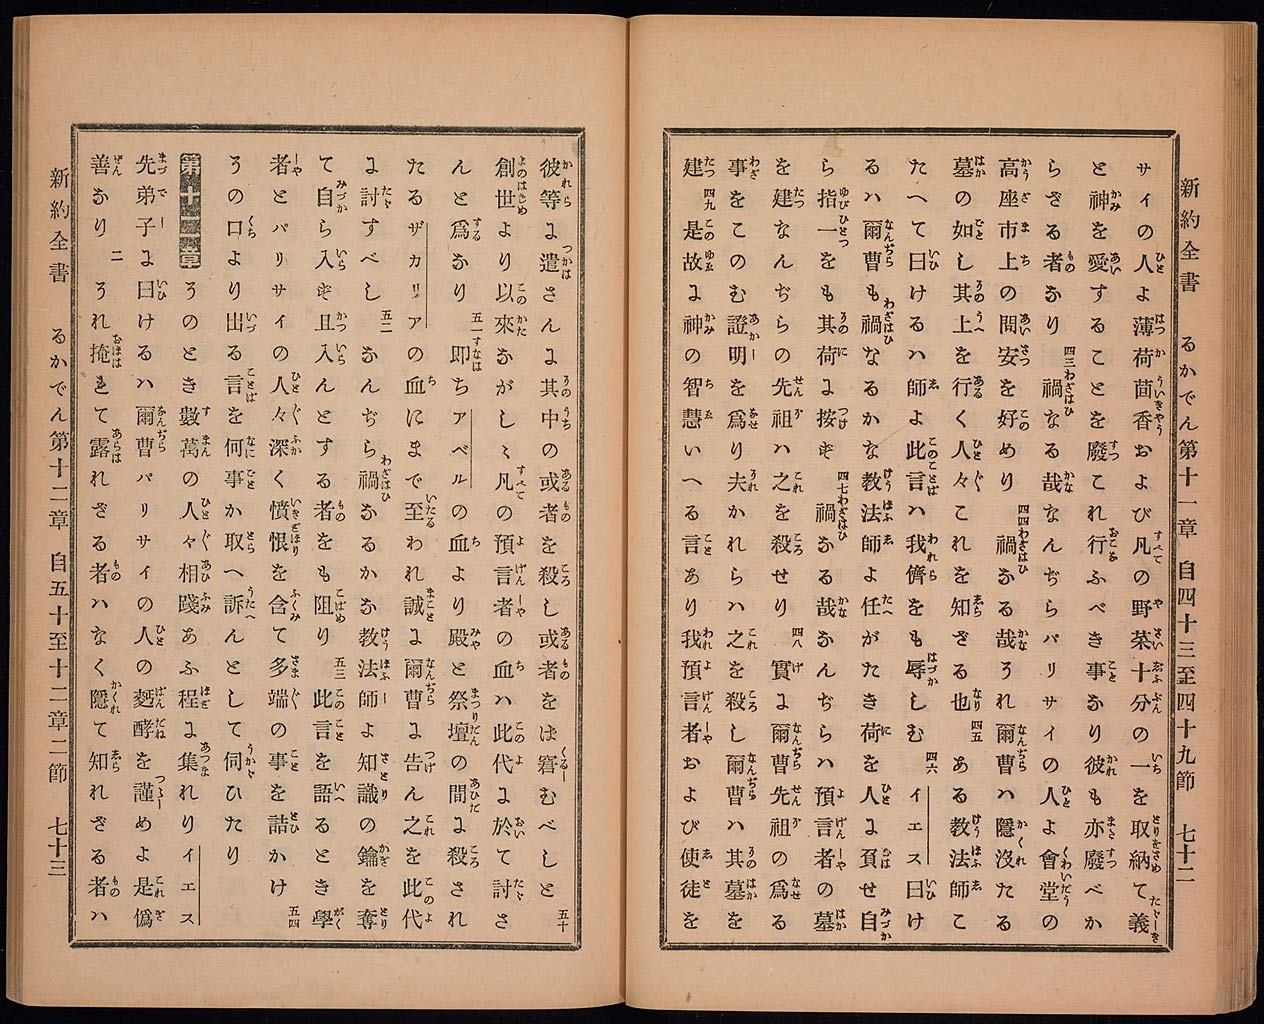 新約全書　るかでん第十一章　自四十三至四十九節　七十二
サイの人よ薄荷茴香および凡の野菜十分の一を取納て義
と神を愛することを廢これ行ふべき事なり彼も亦廢べか
らざる者なり　四三　禍なる哉なんぢらパリサイの人よ會堂の
高座市上の間安を好めり　四四　禍なる哉うれ爾曹ハ隱沒たる
墓の如し其上を行く人々これを知ざる也　四五　ある教法師こ
たへて曰けるハ師よ此言ハ我儕をも辱しむ　四六　イエス曰け
るハ爾曹も禍なるかな教法師よ任がたき荷を人に負せ自
ら指一をも其荷に按ず　四七　禍なる哉なんぢらハ預言者の墓
を建なんぢらの先祖ハ之を殺せり　四八　實に爾曹先祖の爲る
事をこのむ證明を爲り夫かれらハ之を殺し爾曹ハ其墓を
建　四九　是故に神の智慧いへる言あり我預言者および使徒を
彼等に遣さんに其中の或者を殺し或者をば窘むべしと　五十
創世より以來ながしゝ凡の預言者の血ハ此代に於て討さ
んと爲なり　五一　即ちアベルの血より殿と祭壇の間に殺され
たるザカリアの血にまで至るわれ誠に爾曹に告ん之を此代
に討すべし　五二　なんぢら禍なるかな教法師よ知識の鑰を奪
て自ら入ず且入んとする者をも阻り　五三　此言を語るとき學
者とパリサイの人々深く憤恨を含て多端の事を詰かけ　五四
うの口より出る言を何事か取へ訴んとして伺ひたり
第十二章　うのとき數萬の人々相踐あふ程に集れりイエス
先弟子に曰けるハ爾曹パリサイの人の麪酵を謹めよ是僞
善なり　二　うれ掩れて露れざる者ハなく隱て知れざる者ハ
新約全書　るかでん第十二章　自五十至十二章二節　七十三